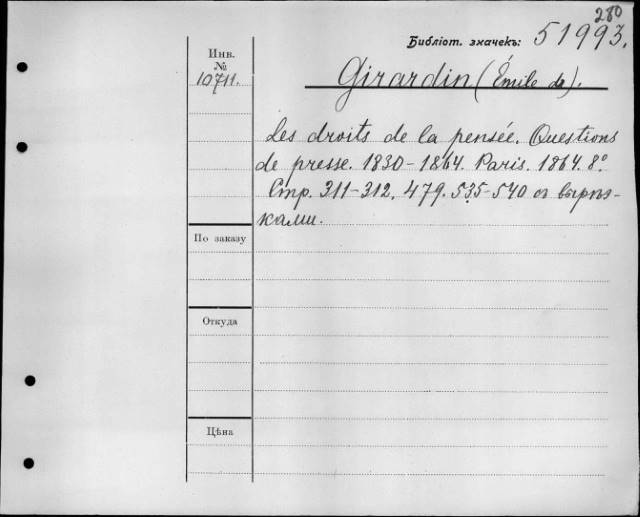 280
Библіот. значекъ: 51993.
Инв.
№
10711.
Girardin (Émile de).
Les droits de la pensée. Questions
de presse. 1830-1864. Paris. 1864. 8°
Стр. 311-312, 479. 535-540 съ вырѣз-
ками.
По заказу
Откуда
Цѣна